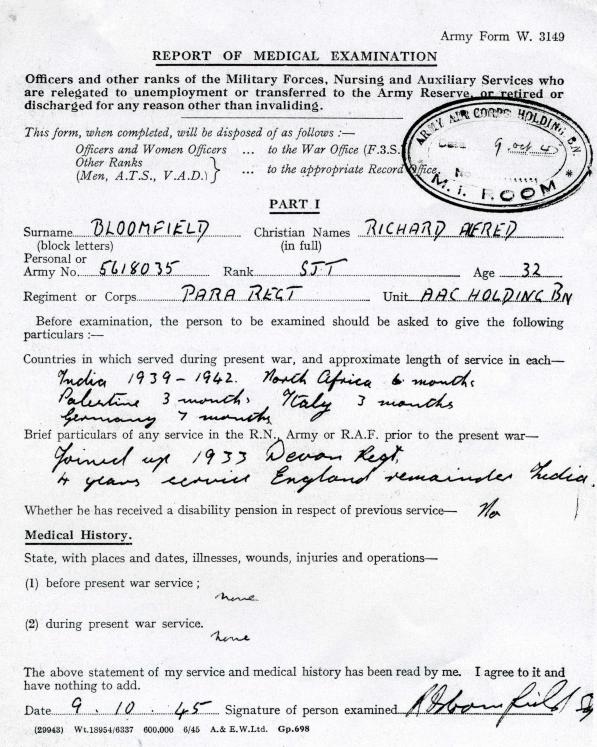 Army Form W. 3149
REPORT OF MEDICAL EXAMINATION
Officers and other ranks of the Military Forces, Nursing and Auxiliary Services who
are relegated to unemployment or transferred to the Army Reserve, or retired or
discharged for any reason other than invaliding.
ARMY AIR CORPS HOLDING BN.
Date 9 Oct 4
No
* M. I. ROOM *
This form, when completed, will be disposed of as follows :—
Officers and Women Officers ... to the War Office (F.3.S.
Other Ranks
(Men, A.T.S., V.A.D.) } ... to the appropriate Record Office.
PART I
Surname BLOOMFIELD Christian Names RICHARD ALFRED
(block letters) (in full)
Personal or
Army No. 5618035 Rank SJT Age 32
Regiment or Corps PARA REGT Unit AAC HOLDING BN
Before examination, the person to be examined should be asked to give the following
particulars :—
Countries in which served during present war, and approximate length of service in each—
India 1939-1942. North Africa 6 months
Palestine 3 months Italy 3 months
Germany 7 months
Brief particulars of any service in the R.N., Army or R.A.F. prior to the present war—
Joined up 1933 Devon Regt.
4 years service England remainder India.
Whether he has received a disability pension in respect of previous service— No
Medical History.
State, with places and dates, illnesses, wounds, injuries and operations—
(1) before present war service ;
none
(2) during present war service.
none
The above statement of my service and medical history has been read by me. I agree to it and
have nothing to add.
Date 9 . 10 . 45 Signature of person examined R Bloomfield Sjt
(29943) Wt.18954/6337 600,000 6/45 A. & E.W.Ltd. Gp.698